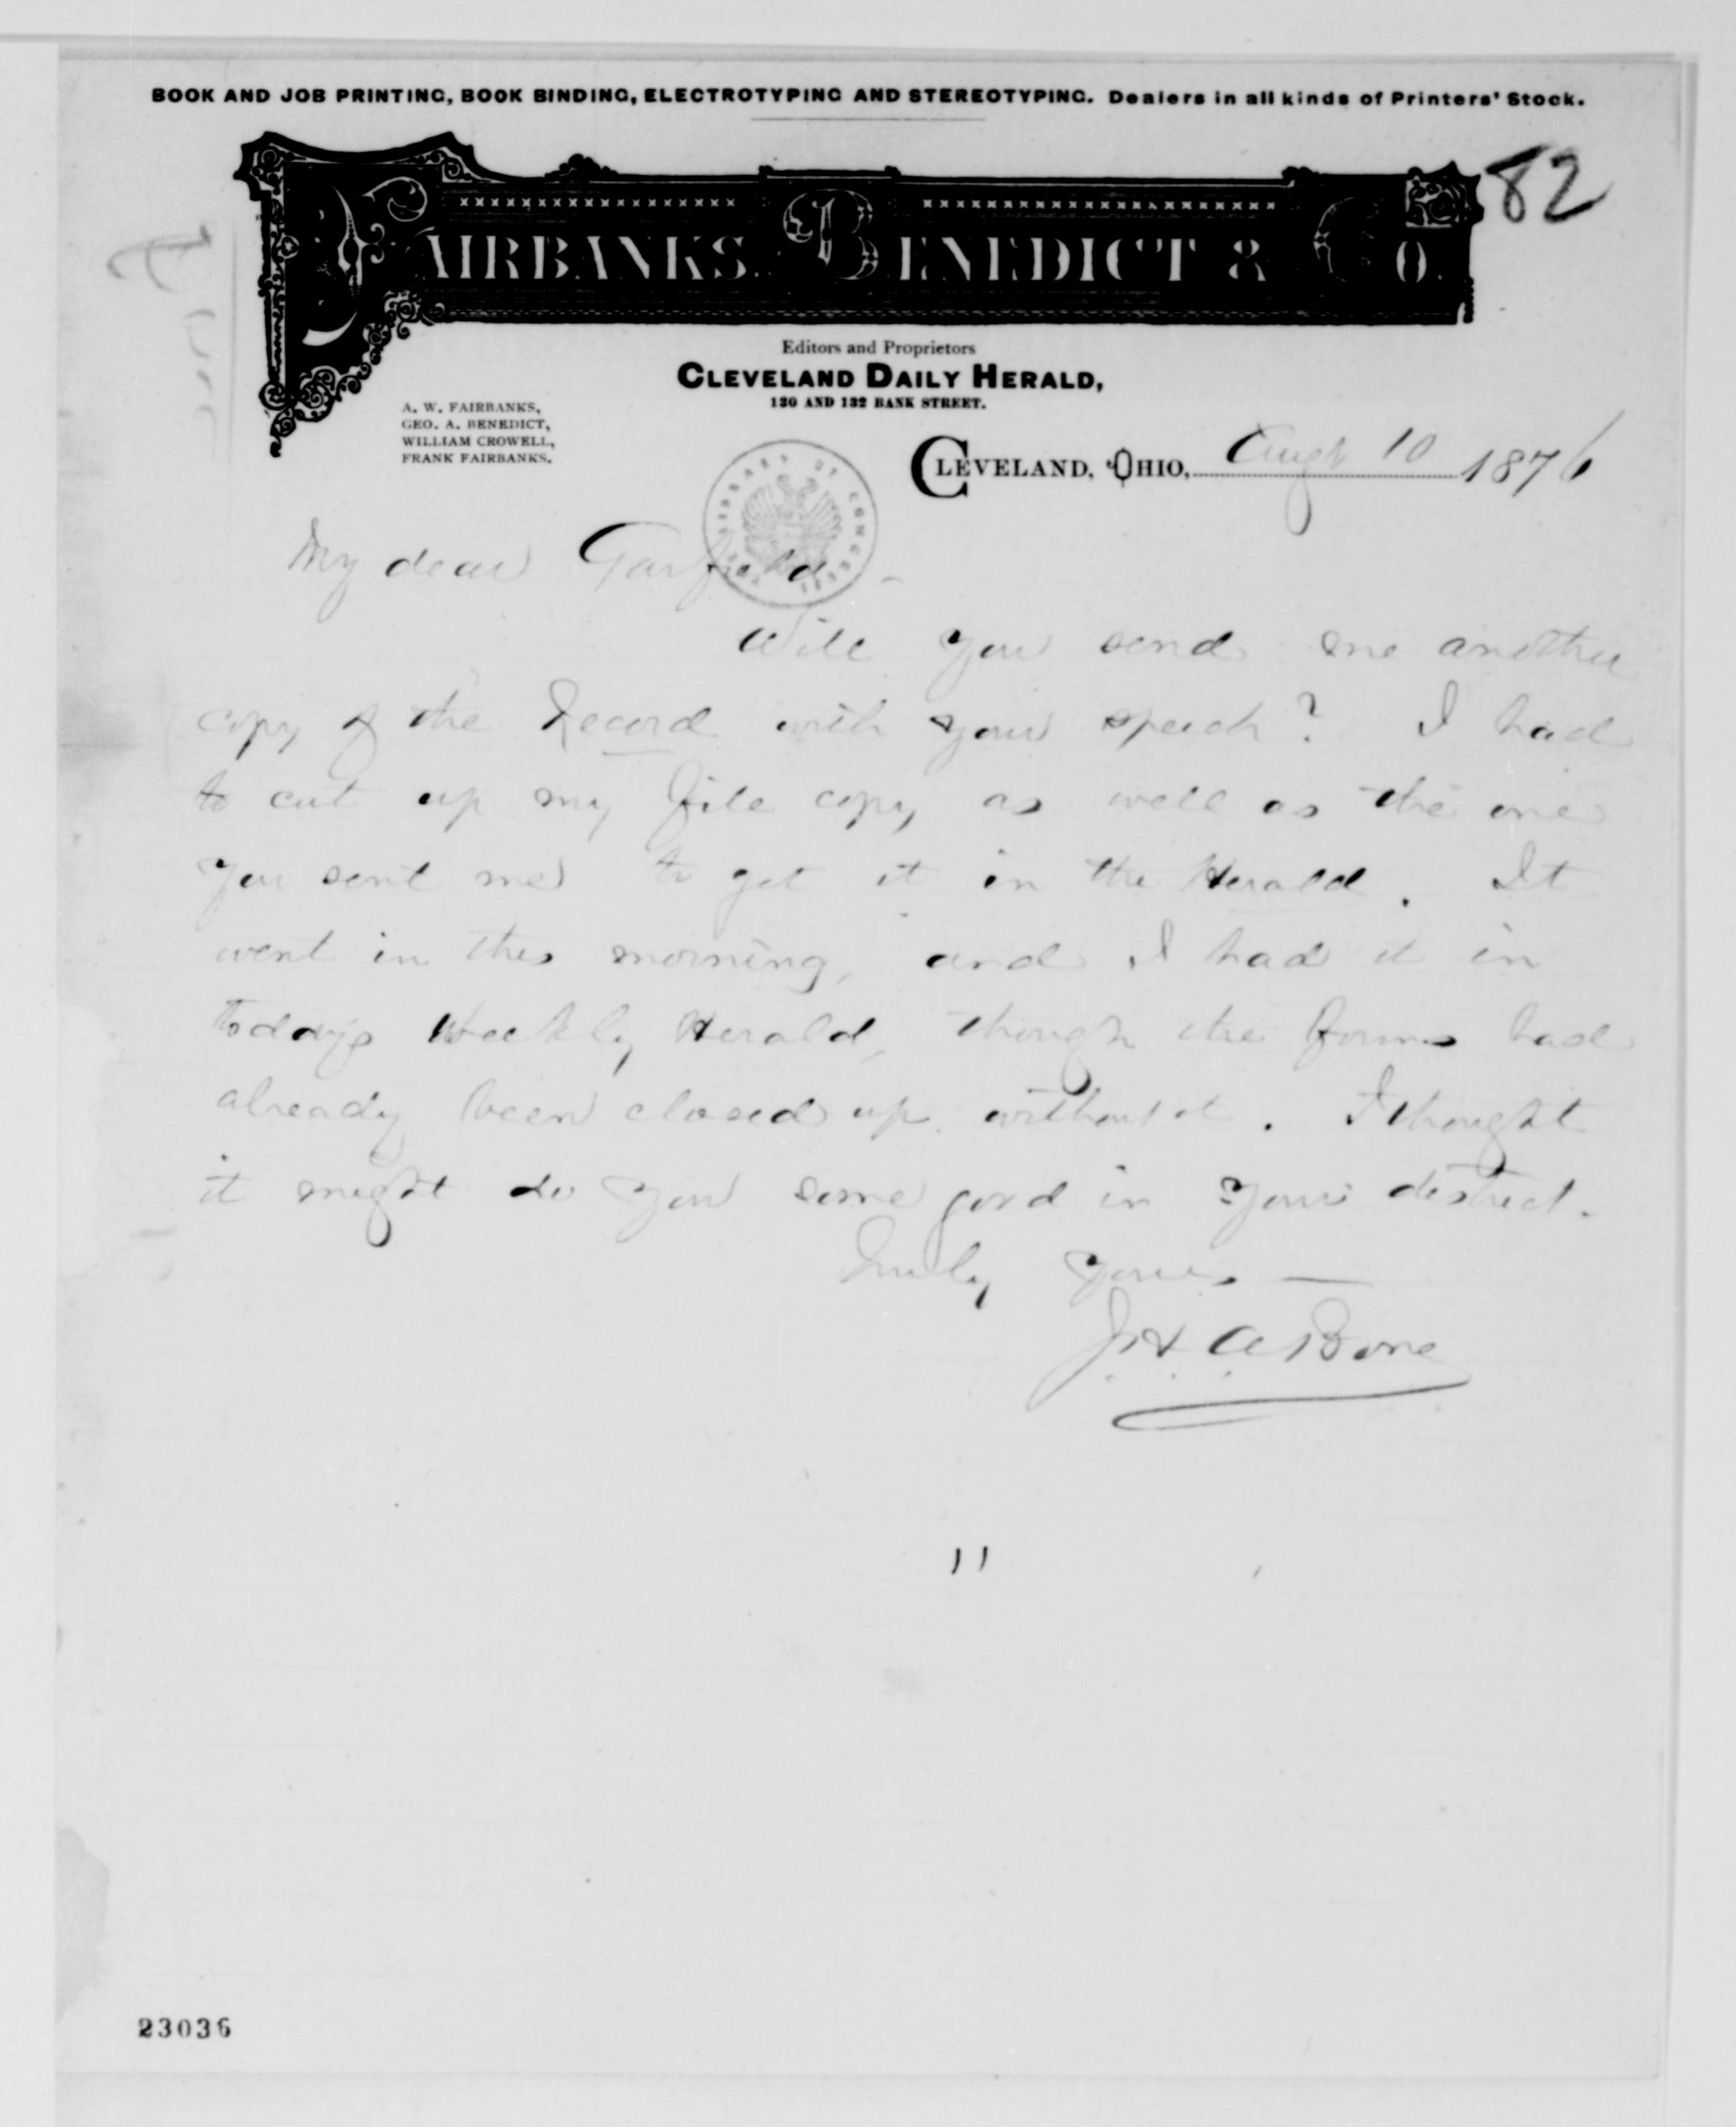 BOOK AND JOB PRINTING, BOOK BINDING, ELECTROTYPING AND STEREOTYPING. Dealers in all kinds of Printers' Stock.
82
FAIRBANKS, BENEDICT & CO.
Editors and Proprietors
CLEVELAND DAILY HERALD,
130 AND 132 BANK STREET.
A. W. FAIRBANKS,
GEO. A. BENEDICT,
WILLIAM CROWELL,
FRANK FAIRBANKS.
CLEVELAND, OHIO, Augt 10 1876
LIBRARY OF CONGRESS
My dear Garfield -
Will you send me another
copy of the Record with your speech? I had
to cut up my file copy as well as the one
you sent me to get it in the Herald. It
went in this morning, and I had it in
todays Weekly Herald, though the forms had
already been closed up without it. I thought
it might do you some good in your district.
Truly yours —
J. H. A. Bone
11
23036